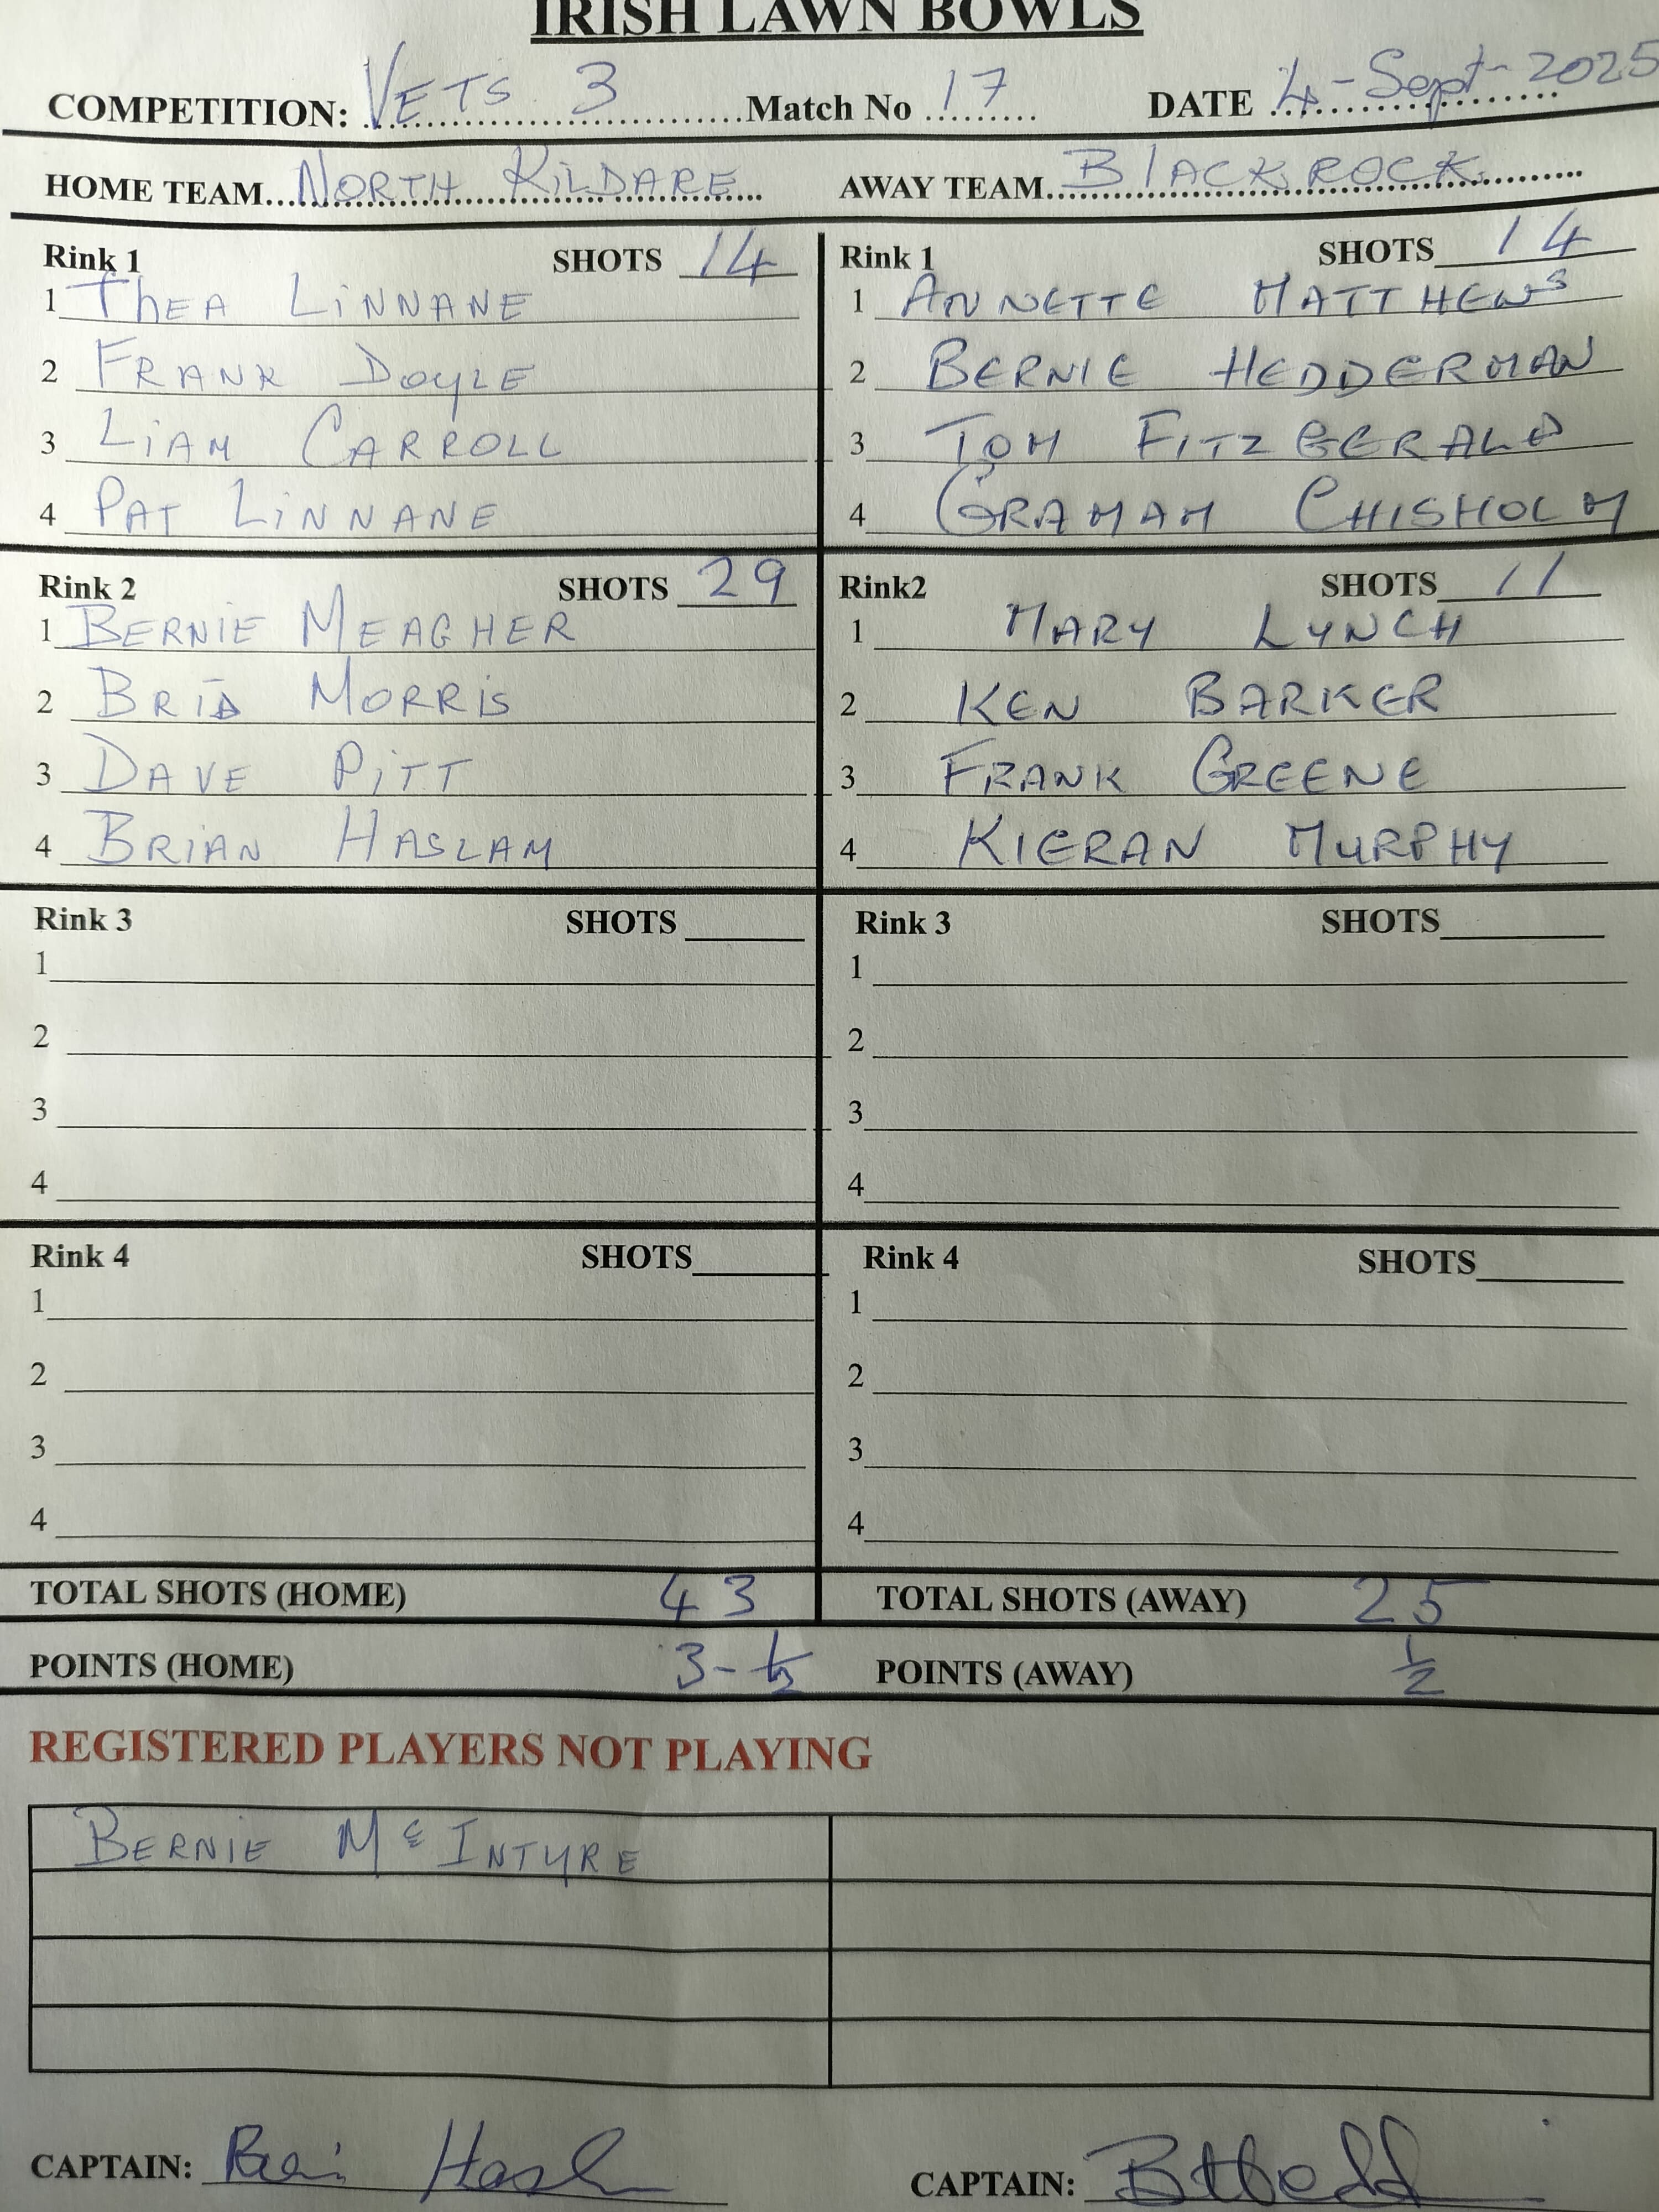 IRISH LAWN BOWLS
COMPETITION: VETS 3 Match No 17 DATE 4-Sept-2025
HOME TEAM NORTH KILDARE AWAY TEAM BLACKROCK
Rink 1 SHOTS 14
1 THEA LINNANE
2 FRANK DOYLE
3 LIAM CARROLL
4 PAT LINNANE
Rink 1 SHOTS 14
1 ANNETTE MATTHEWS
2 BERNIE HEDDERMAN
3 TOM FITZGERALD
4 GRAHAM CHISHOLM
Rink 2 SHOTS 29
1 BERNIE MEAGHER
2 BRID MORRIS
3 DAVE PITT
4 BRIAN HASLAM
Rink2 SHOTS 11
1 MARY LYNCH
2 KEN BARKER
3 FRANK GREENE
4 KIERAN MURPHY
Rink 3 SHOTS
1
2
3
4
Rink 3 SHOTS
1
2
3
4
Rink 4 SHOTS
1
2
3
4
Rink 4 SHOTS
1
2
3
4
TOTAL SHOTS (HOME) 43 TOTAL SHOTS (AWAY) 25
POINTS (HOME) 3-½ POINTS (AWAY) ½
REGISTERED PLAYERS NOT PLAYING
BERNIE Mc INTYRE
CAPTAIN: CAPTAIN: